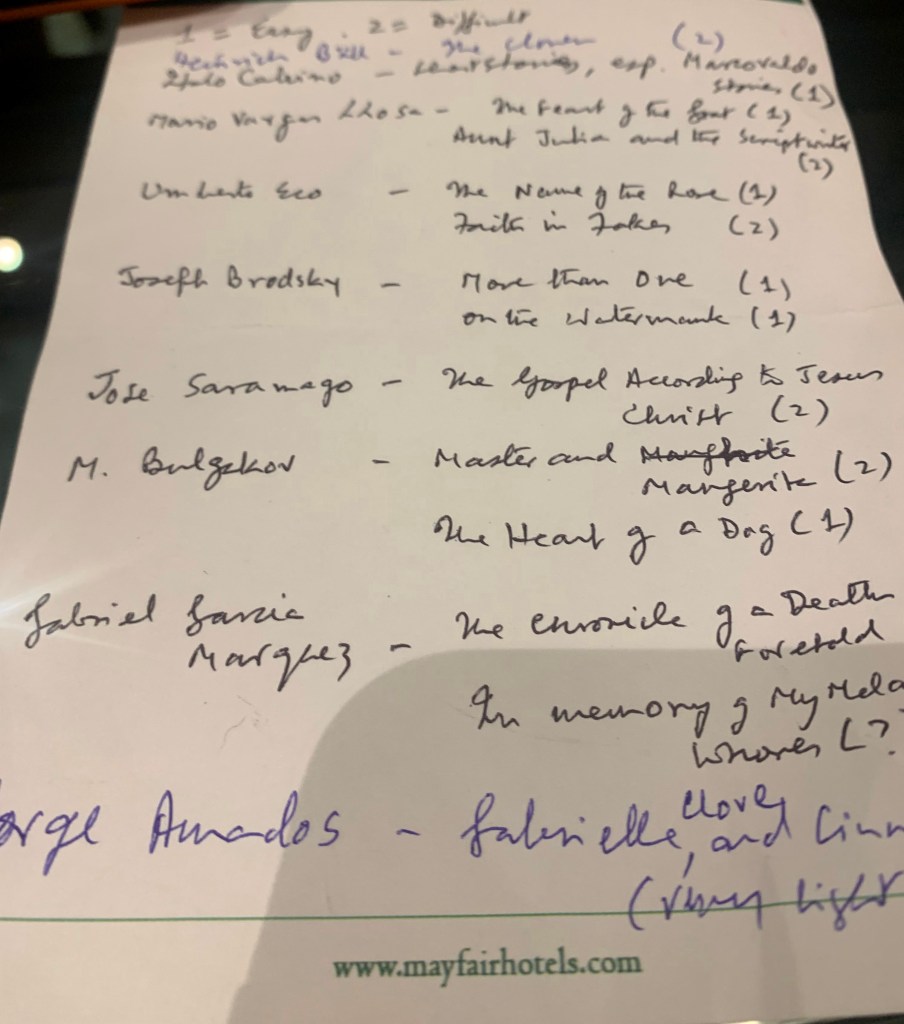 1 = Easy . 2 = Difficult
Heinrich Böll - The Clown (2)
Italo Calvino - short stories, esp. Marcovaldo
stories (1)
Mario Vargas Llosa - The Feast of the Goat (1)
Aunt Julia and the Scriptwriter
(2)
Umberto Eco - The Name of the Rose (1)
Faith in Fakes (2)
Joseph Brodsky - More than One (1)
on the Watermark (1)
Jose Saramago - The Gospel According to Jesus
Christ (2)
M. Bulgakov - Master and
Margerite (2)
The Heart of a Dog (1)
Gabriel Garcia
Marquez - The Chronicle of a Death
Foretold
In memory of My Mela
Whores (?
orge Amados - Gabrielle, Clove
and Cinn
(very light
www.mayfairhotels.com